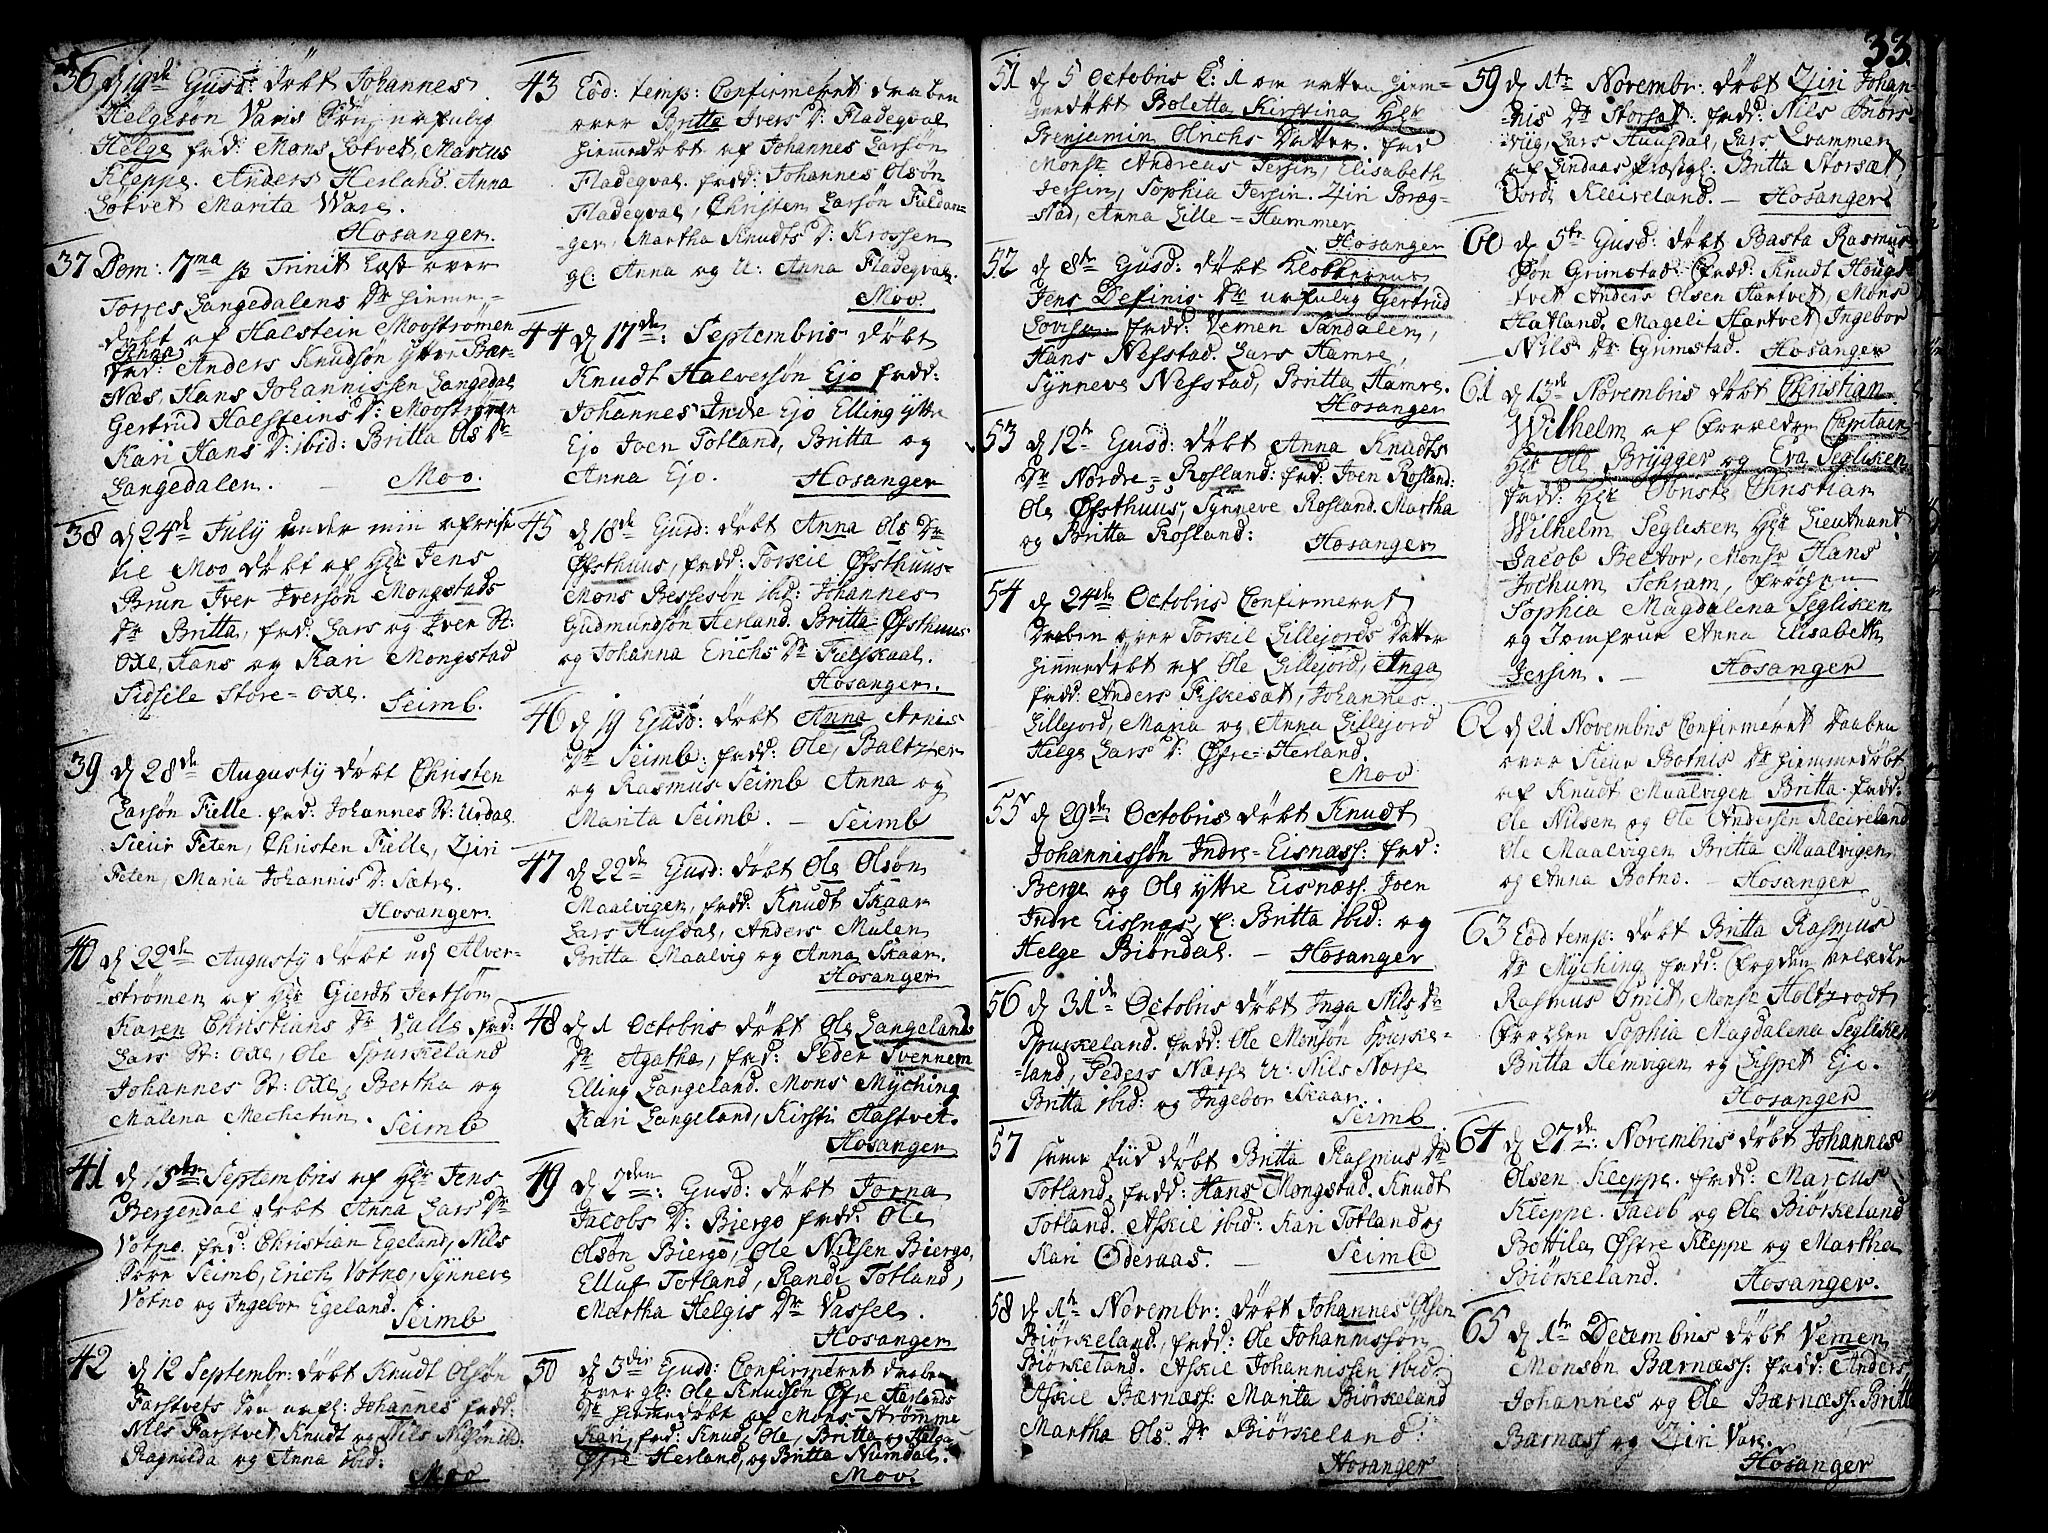 36 d 19de Ejusd: döbt Johannes
Helgesøn Varis Søn, nafnlig
Helge fad: Mons Løtvet, Marcus
Kleppe. Anders Herland. Anna
Løtvet Marita Ware.
Hosanger.
37 Dom: 7ma p Trinit Læst over
Torres Langedalens Dr hieme-
döbt af Halstein Mooströmen
Anna
fad: Anders Knudsøn Bær-
Næs. Hans Johannissen Langedal
Gertrud Halsteins D: Mooströmen
Kari Hans D: ibid: Britta Ols Dr
Langedalen. Moo.
38 d 24de July under min afreise
til Moo döbt af Hr Jens
Brun Iver Iversøn Mongstads
Dr Britta, fad: Lars og Iver St:
Oxe, Hans og Kari Mongstad
Sidsile Store=oxe. Seimb.
39 d 28de Augusty döbt Christen
Larsøn Fielle. fad: Johannes St: Urdal
Sieur Feten, Christen Fielle, Ziri
Feten, Maria Johannis D: Sætre.
Hosanger.
40 d 22de Augusty döbt ud Alver-
strömen af Hr Gierdt Jertsøn
Karen Christians Dr Valle fad:
Lars St: Oxe, Ole Spurkeland
Johannes St: Oxe, Bertha og
Malena Mechetun. Seimb
41 d 15de Septembris af Hr Jens
Bergendal döbt Anna Lars Dr
Votno. fad: Christian Egeland, Nils
Søre Seimb, Erich Votno, Synneve
Votno og Ingebor Egeland.
Seimb
42 d 12 Septembr: döbt Knudt Olsøn
Farstvets Søn nafl: Johannes fadd:
Nils Farstvet Knudt og Nils Nilsøn ibid:
Ragnilda og Anna ibid:
Moo
43 Eod: temp: Confirmeret daaben
over Britta Ivers D: Fladeqval
hiemmedöbt af Johannes Larsøn
Fladeqval. fadd: Johannes Olsøn
Fladeqval, Christen Larsøn Fuldan-
ger, Martha Knudts D: Krossen
gl: Anna og U: Anna Fladeqval.
Moo.
44 d 17de: Septembris döbt
Knudt Halversøn Ejo fadd:
Johannes Indre Ejo Elling ytte
Ejo Joen Totland, Britta og
Anna Ejo. Hosanger
45 d 18de Ejusd: döbt Anna Ols Dr
Øfsthuus, fadd: Torkil Øfsthuus-
Mons Bessesøn ibid: Johannes
Gudmundsøn Herland. Britta Øfsthuus
og Johanna Erichs Dr Fielskaal.
Hosanger.
46 d 19 Ejusd: döbt Anna Arnis
Dr Seimb: fadd: Ole, Baltzer
og Rasmus Seimb Anna og
Marita Seimb. – Seimb
47 d 22de Ejusd: döbt Ole Olsøn
Maalvigen, fadd: Knudt Skaar
Lars Husdal, Anders Mulen
Britta Maalvig og Anna Skaar.
Hosanger
48 d 1 Octobris döbt Ole Langelands
Dr Agatha, fad: Peder Svennem
Elling Langeland. Mons Myching
Kari Langeland, Kirsti Hastvet.
Hosanger
49 d 2den: Ejusd: döbt Jorna
Jacobs D: Biergo fadd: Ole
Olsøn Biergo, Ole Nilsen Biergo,
Elluf Totland, Randi Totland,
Martha Helgis Dr Vassel.
Hosanger
50 d 3die Ejusd: Confirmeret daaben
over gl: Ole Knudsøn Øfre Herlands
Dr hiemmedöbt af Mons Strömme
Kari, fad: Knud, Ole, Britta og Helga
Øfre Herland, og Britta Numdal.
Moo.
33.
51 d 5 Octobris hiem-
medöbt Boletta Kirstina Hr
Benjamin Olrichs Datter. fad
Monsr Andreas Jersin, Elisabeth
Jersin, Sophia Jersin. Ziri Bræg-
stad, Anna Lille=Hammer
Hosanger
52 d 8de Ejusd: döbt Klokkerens
Jens Definis Dr nafnlig Gertrud
Lovisa: fadd: Vemen Sandalen,
Hans Nesstad. Lars Hamre,
Synneve Nesstad, Britta Hamre.
Hosanger
53 d 12te Ejusd: döbt Anna Knudts
Dr Nordre=Rosland: fad: Joen Rosland:
Ole Øfsthuus, Synneve Rosland. Martha
og Britta Rosland: Hosanger
54 d 24de Octobris Confirmeret
Daaben over Torkil Lillejords Datter
hiemmedöbt af Ole Lillejord, Inga
fadd: Anders Fiskesæt, Johannes
Lillejord, Maria og Anna Lillejord
Helge Lars D: Øfre=Herland.
Moo
55 d 29de: Octobris döbt Knudt
Johannissøn Indre=Eisnæss: fad:
Berge og Ole yttre Eisnæss. Joen
Indre Eisnæs, Britta ibid: og
Helge Biöndal. – Hosanger
56 d 31de Octobris döbt Inga Nils Dr
Spurkeland. fadd: Ole Monsøn Spurke-
land, Peder Nærse Nils Norse
Britta ibid: og Ingebor Skaar.
Seimb
57 samme tiid döbt Britta Rasmus Dr
Totland. fadd: Hans Mongstad. Knudt
Totland. Askil ibid: Kari Totland og
Kari Oderaas. – Seimb
58 d 1te Novembr: döbt Johannes Olsen
Biörkeland, fadd: Ole Johannissøn
Biörkeland. Askil Johannissen ibid:
Askil Bærnæss: Marita Biörkeland
Martha Ols Dr Biörkeland:
Hosanger
59 d 1te Novembr: döbt Ziri Johan-
nis Dr Storsæt: fadd: Nils Thors
viig, Lars Huusdal, Lars Qvammen
af Lindaas Præstgl: Britta Storsæt,
Dordi Kleiveland. – Hosanger
60 d 5te Ejusd: döbt Basta Rasmus
søn Grimstad. fadd: Knudt Hougs-
tvet Anders Olsen Hantvet, Mons
Hatland. Mageli Hantvet Ingebor
Nils Dr Grimstad. Hosanger
61 d 13de Novembris döbt Christian
Wilhelm af Forældre Capitain
Hr Ole Brügger og Eva Segliken
fadd: Hr Obrste Christian
Wilhelm Segliken Hr Lieutnant
Jacob Bector, Monsr Hans
Jochum Schram, Fröchen
Sophia Magdalena Segliken
og Jomfrue Anna Elisabeth
Jersin. – Hosanger
62 d 21 Novembris Confirmeret Daaben
over Sieur Botnis Dr hiemmedöbt
af Knudt Maalvigen Britta. fadd:
Ole Nilsen og Ole Andersen Kleiveland
Ole Maalvigen Britta Maalvigen
og Anna Botno. – Hosanger
63 Eod temp: döbt Britta Rasmus
Dr Myching fadd: Fogden
Rasmus Smit, Monsr Holtzrodt
Fröchen Sophia Magdalena Segliken
Britta Hemvigen og Lispet Ejo.
Hosanger
64 d 27de: Novembris döbt Johannes
Olsen Kleppe. fadd: Marcus
Kleppe. Jacob og Ole Biörkeland
Botilla Øfre Kleppe og Martha
Biörkeland. Hosanger.
65 d 1te Decembris döbt Vemen
Monsøn Bærnæss: fadd: Anders,
Johannes og Ole Bærnæss. Britta
Bærnæss og Ziri Vare.
Hosanger